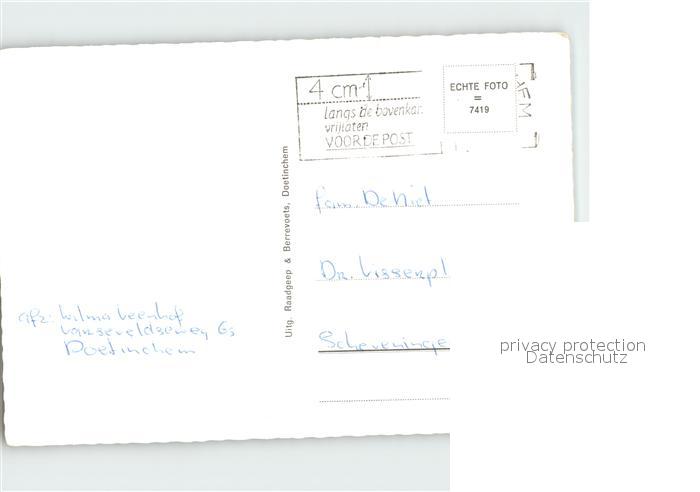 4 cm
langs de bovenkan
vrijlaten
VOOR DE POST
ECHTE FOTO
=
7419
Uitg. Raadgeep & Berrevoets, Doetinchem
fam. De Niet
Dr. Visserpl
Scheveninge
afz: Wilma Veenhof
Varseveldseweg 63
Doetinchem
privacy protection
Datenschutz